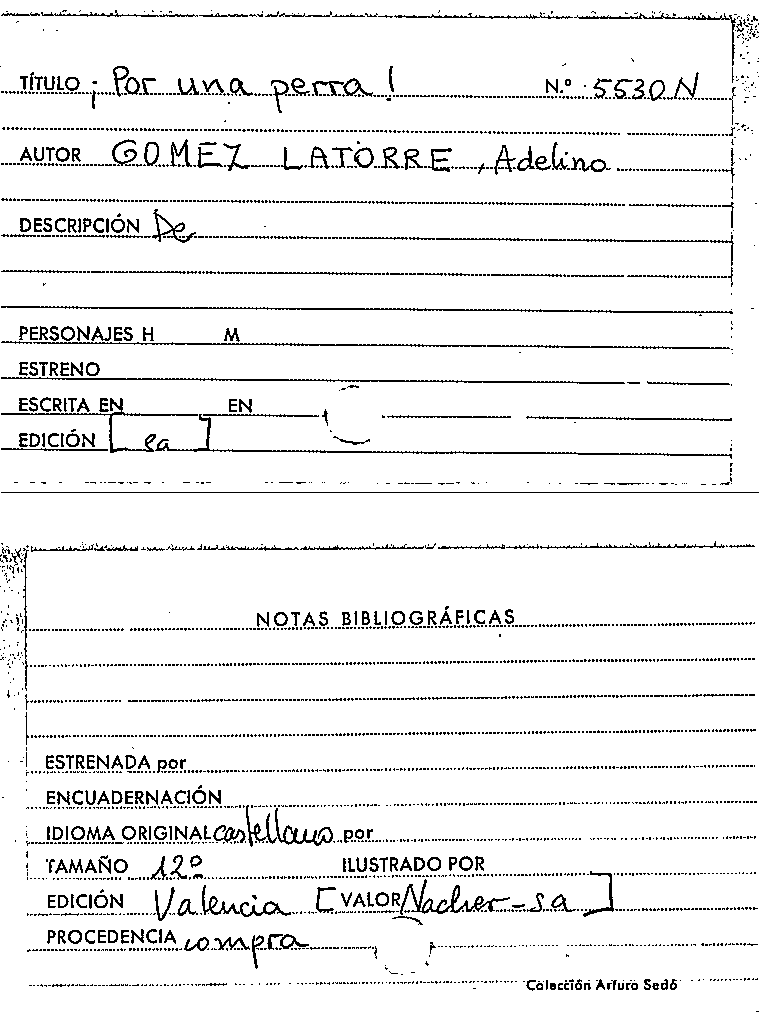 TÍTULO ¡Por una perra! N.º 5530 N
AUTOR GOMEZ LATORRE, Adelino
DESCRIPCIÓN De
PERSONAJES H M
ESTRENO
ESCRITA EN EN
EDICIÓN [sa]
NOTAS BIBLIOGRÁFICAS
ESTRENADA por
ENCUADERNACIÓN
IDIOMA ORIGINAL castellano por
TAMAÑO 12º ILUSTRADO POR
EDICIÓN Valencia [VALOR Nacher-sa]
PROCEDENCIA compra
Colección Arturo Sedó